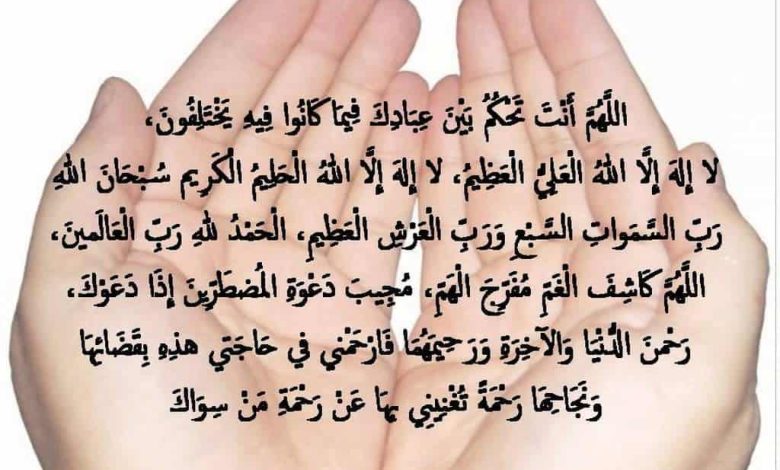 اللَّهُمَّ أَنْتَ تَحْكُمُ بَيْنَ عِبَادِكَ فِيمَا كَانُوا فِيهِ يَخْتَلِفُونَ،
لا إِلهَ إِلَّا اللهُ الْعَلِيُّ الْعَظِيْمُ، لا إِلهَ إِلَّا اللهُ الْحَلِيمُ الْكَرِيم سُبْحَانَ اللهِ
رَبِّ السَّمَواتِ السَّبْعِ وَرَبِّ الْعَرْشِ الْعَظِيمِ، الْحَمْدُ للهِ رَبِّ الْعَالَمينَ،
اللَّهُمَّ كَاشِفَ الْغَمِّ مُفَرِّجَ الْهَمِّ، مُجِيبَ دَعْوَةِ الْمُضطَرِّينَ إِذَا دَعَوْكَ،
رَحْمنَ الدُّنْيَا وَالْآخِرَةِ وَرَحِيمَهُمَا فَارْحَمْني في حَاجَتي هذِهِ بِقَضَائِهَا
وَنَجَاحِهَا رَحْمَةً تُغْنِينِي بِهَا عَنْ رَحْمَةِ مَنْ سِوَاكَ